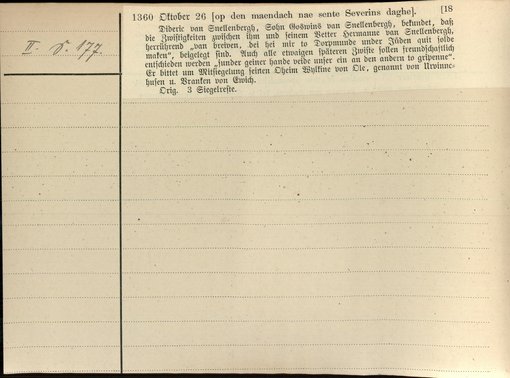 II. S. 177.
1360 Oktober 26 [op den maendach nae sente Severins daghe]. [18
Dideric van Snellenbergh, Sohn Goswins van Snellenbergh, bekundet, daß
die Zwistigkeiten zwischen ihm und seinem Vetter Hermanne van Snellenbergh,
herrührend „van breiven, dei hei mir to Dorpmunde under Jüden quit solde
maken“, beigelegt sind. Auch alle etwaigen späteren Zwiste sollen freundschaftlich
entschieden werden „sunder geiner hande veide unser ein an den andern to gripenne“.
Er bittet um Mitsiegelung seinen Oheim Wylkine van Ole, genannt von
husen u. Vranken von Ewich.
Orig. 3 Siegelreste.